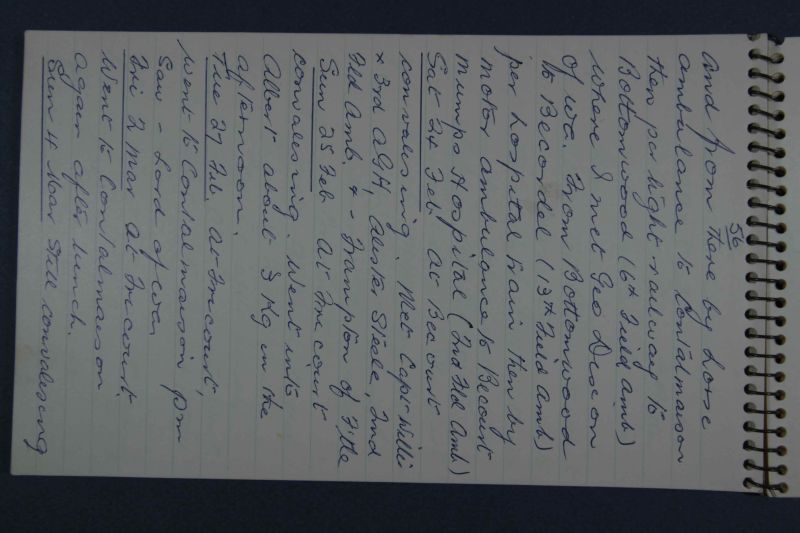 56
And from there by horse
ambulance to Contalmaison
then per light railway to
Bottomwood (6th Field Amb)
where I met Geo Dixon
of wa. From Bottomwood
to Becordel (13th Field Amb)
per hospital train then by
motor ambulance to Becourt
Mumps Hospital (2nd Fld Amb)
Sat 24 Feb At Becourt
convalesing. Met Capt Willi
x 3rd AGH, Steele, 2nd
Fld Amb. + - Frampton of
Sun 25 Feb At Fricourt
convalesing. Went into
Albert about 3 Kg in the
afternoon.
Tue 27 Feb. At Fricourt,
went to Contalmaison pm
Saw - Lord of wa,
Fri 2 Mar At Fricourt.
Went to Contalmaison
again after lunch.
Sun 4 Mar Still convalesing